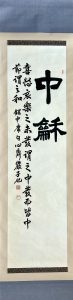 中龢
喜怒哀樂之未發謂之中發而皆中
節謂之和